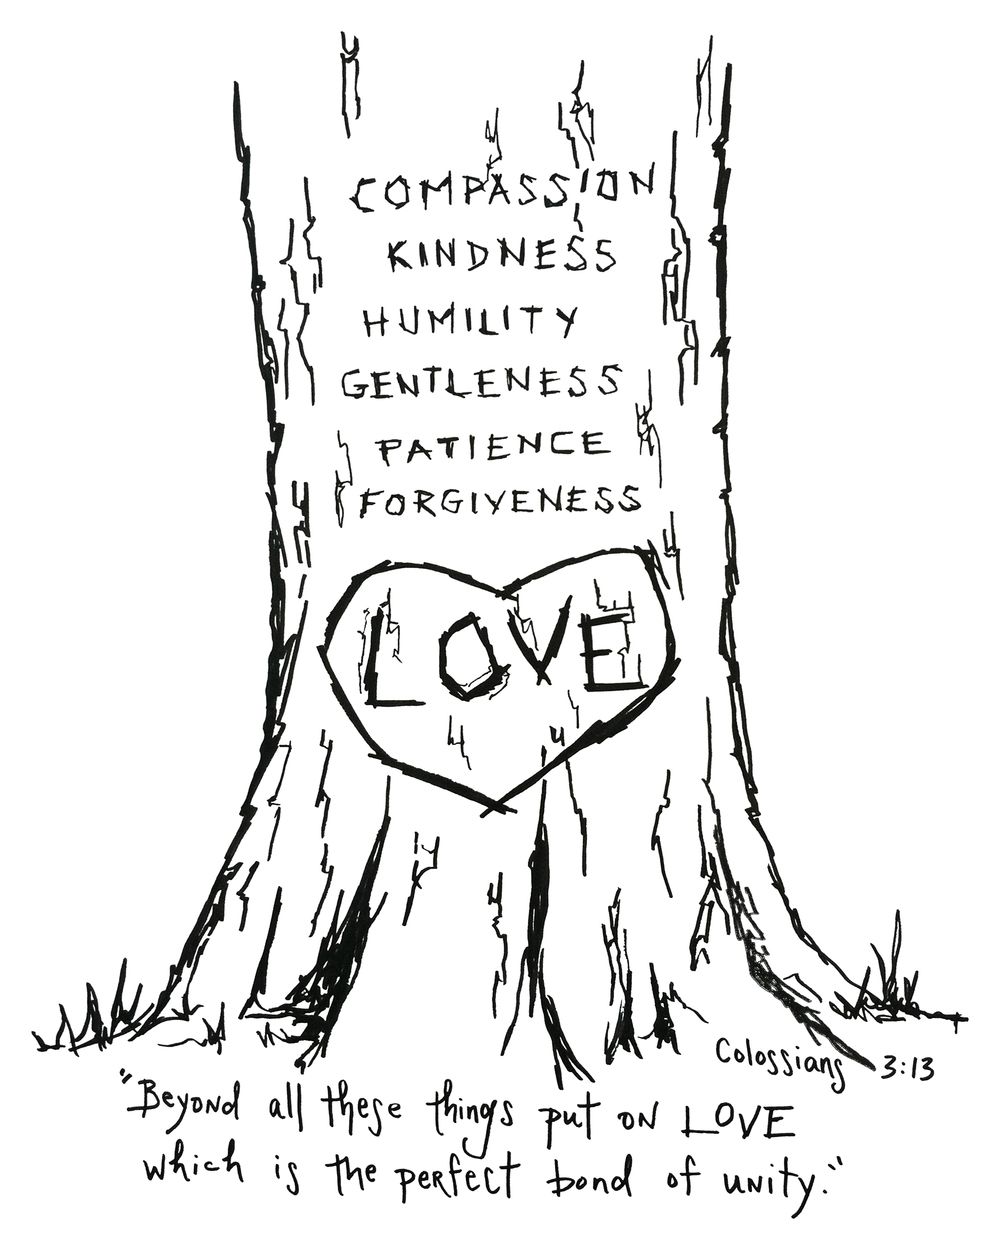 COMPASSION
KINDNESS
HUMILITY
GENTLENESS
PATIENCE
FORGIVENESS
LOVE
Colossians 3:13
"Beyond all these things put on LOVE
which is the perfect bond of unity."